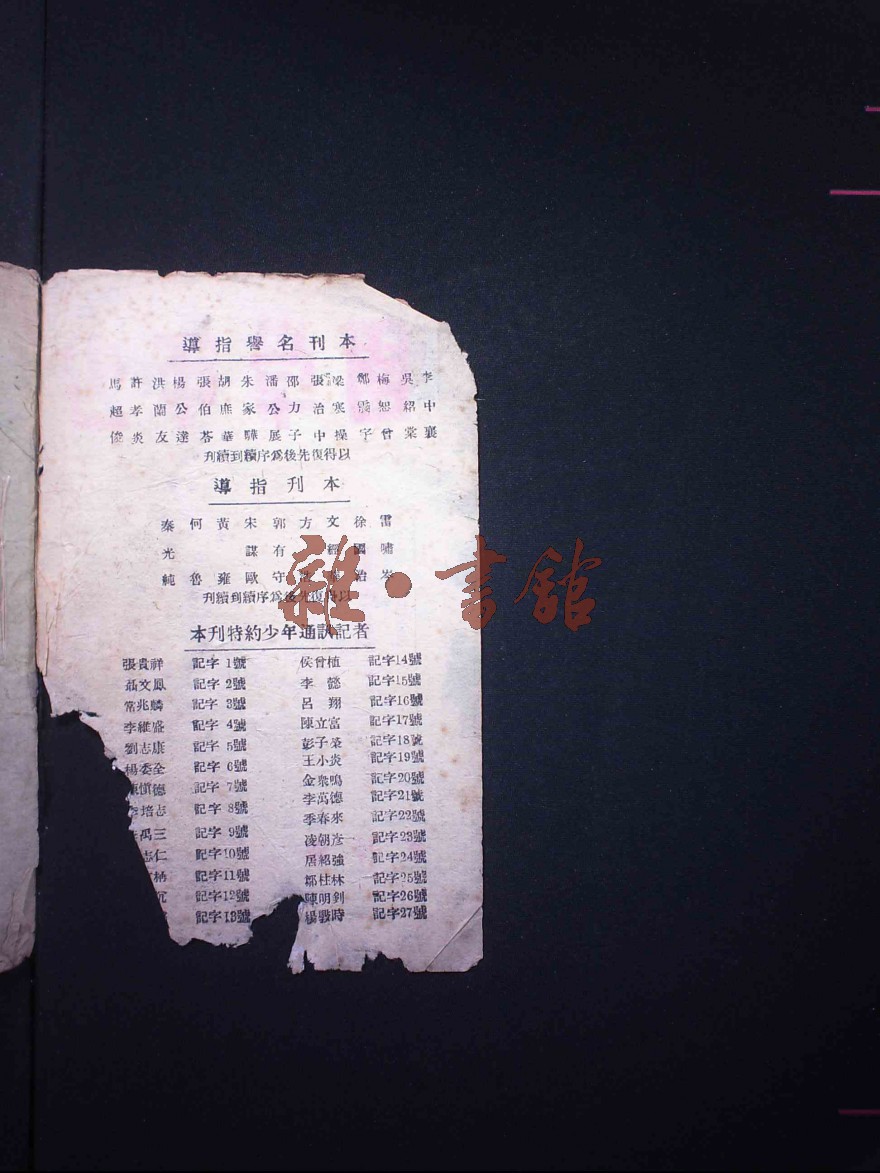 本刊名譽指導
李中襄
吳紹棠
梅恕曾
鄭震宇
梁寒操
張治中
邵力子
潘公展
朱家驊
胡庶華
張伯苓
楊公達
洪蘭友
許孝炎
馬超俊
以得復先後爲序續到續刊
本刊指導
雷嘯岑
徐國治
文經
方治
郭有守
宋謀歐
黃雍
何魯
秦光純
以得復先後爲序續到續刊
本刊特約少年通訊記者
張貴祥 記字1號
聶文鳳 記字2號
常兆麟 記字3號
李維盛 記字4號
劉志康 記字5號
楊委全 記字6號
陳愼德 記字7號
李培志 記字8號
禹三 記字9號
志仁 記字10號
柟 記字11號
沉 記字12號
記字13號
侯曾植 記字14號
李懿 記字15號
呂翔 記字16號
陳立富 記字17號
彭子 記字18號
王小炎 記字19號
金衆鳴 記字20號
李萬德 記字21號
季春來 記字22號
凌朝彥 記字23號
居紹強 記字24號
鄒柱林 記字25號
陳明釗 記字26號
楊戰時 記字27號
雜·書館